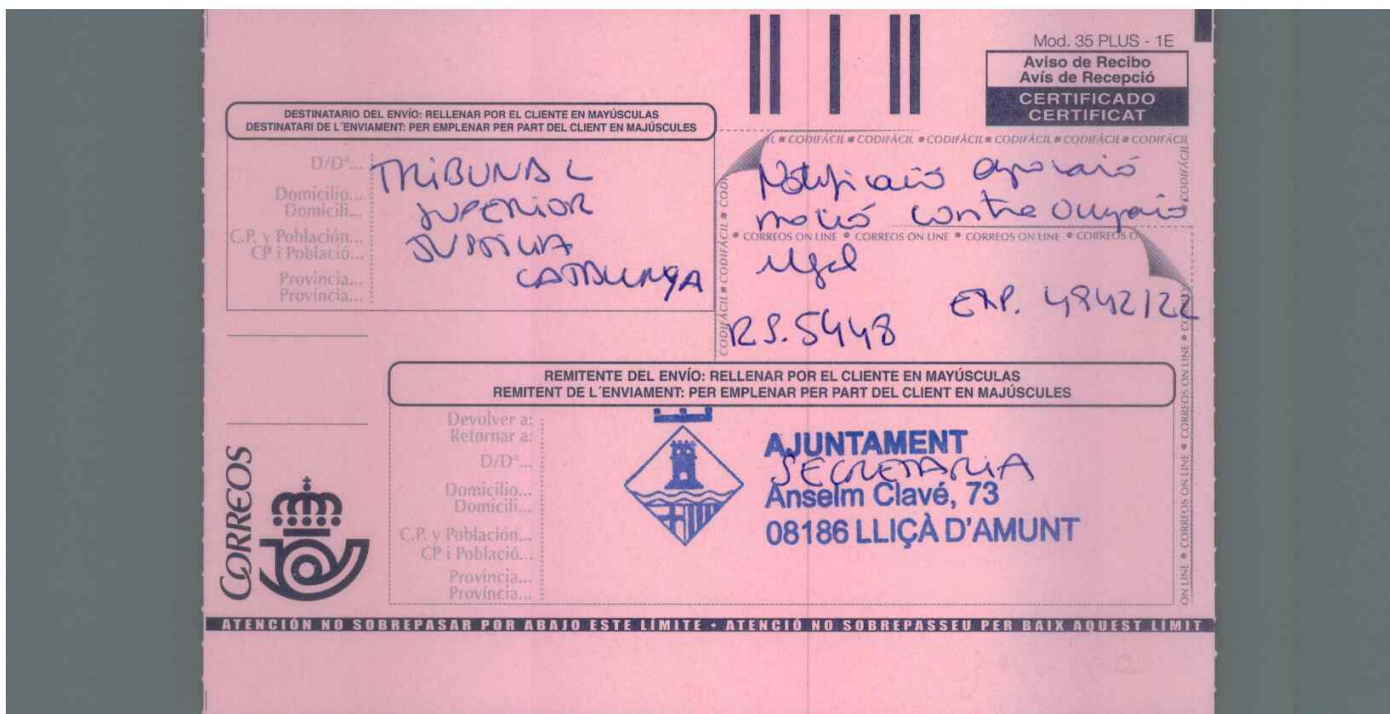 Mod. 35 PLUS - 1E
Aviso de Recibo
Avís de Recepció
CERTIFICADO
CERTIFICAT
DESTINATARIO DEL ENVÍO: RELLENAR POR EL CLIENTE EN MAYÚSCULAS
DESTINATARI DE L´ENVIAMENT: PER EMPLENAR PER PART DEL CLIENT EN MAJÚSCULES
D/Dª...
Domicilio...
Domicili...
C.P. y Población...
CP i Població...
Provincia...
Província...
TRIBUNAL
SUPERIOR
JUSTICIA
CATALUNYA
L ■ CODIFÁCIL ■ CODIFÁCIL ■ CODIFÁCIL ■ CODIFÁCIL ■ CODIFÁCIL ■ CODIFÁCIL
Notificació aprovació
moció contra ocupació
• CORREOS ON LINE • CORREOS ON LINE • CORREOS ON LINE • CORREOS O
ilegal
EXP. 4942/22
RS. 5448
REMITENTE DEL ENVÍO: RELLENAR POR EL CLIENTE EN MAYÚSCULAS
REMITENT DE L´ENVIAMENT: PER EMPLENAR PER PART DEL CLIENT EN MAJÚSCULES
Devolver a:
Retornar a:
D/Dª...
Domicilio...
Domicili...
C.P. y Población...
CP i Població...
Provincia...
Província...
AJUNTAMENT
SECRETARIA
Anselm Clavé, 73
08186 LLIÇÀ D'AMUNT
CORREOS
ATENCIÓN NO SOBREPASAR POR ABAJO ESTE LÍMITE • ATENCIÓ NO SOBREPASSEU PER BAIX AQUEST LÍMIT